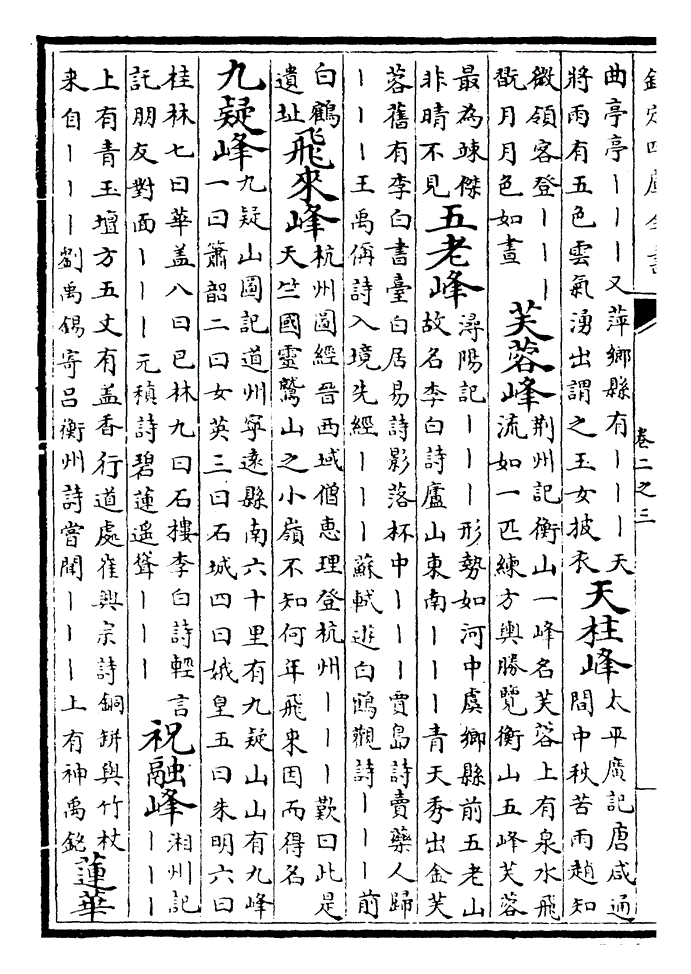 欽定四庫全書
卷二之三
曲亭亭丨丨丨又萍鄉縣有丨丨丨天
將雨有五色雲氣湧出謂之玉女披衣
天柱峰
太平廣記唐咸通
間中秋苦雨趙知
微領客登丨丨丨
翫月月色如晝
芙蓉峰
荆州記衡山一峰名芙蓉上有泉水飛
流如一匹練方輿勝覽衡山五峰芙蓉
最為竦傑
非晴不見
五老峰
潯陽記丨丨丨形勢如河中虞鄉縣前五老山
故名李白詩廬山東南丨丨丨青天秀出金芙
蓉舊有李白書臺白居易詩影落杯中丨丨丨賈島詩賣藥人歸
丨丨丨王禹偁詩入境先經丨丨丨蘇軾遊白鶴觀詩丨丨丨前
白鶴
遺址
飛來峰
杭州圖經晉西域僧惠理登杭州丨丨丨歎曰此是
天竺國靈鷲山之小嶺不知何年飛來因而得名
九疑峰
九疑山圖記道州寧遠縣南六十里有九疑山山有九峰
一曰簫韶二曰女英三曰石城四曰娥皇五曰朱明六曰
桂林七曰華盖八曰巴林九曰石樓李白詩輕言
託朋友對面丨丨丨元稹詩碧蓮遥聳丨丨丨
祝融峰
湘州記
丨丨丨
上有青玉壇方五丈有盖香行道處崔興宗詩銅缾與竹杖
來自丨丨丨劉禹錫寄吕衡州詩嘗聞丨丨丨上有神禹銘
蓮華